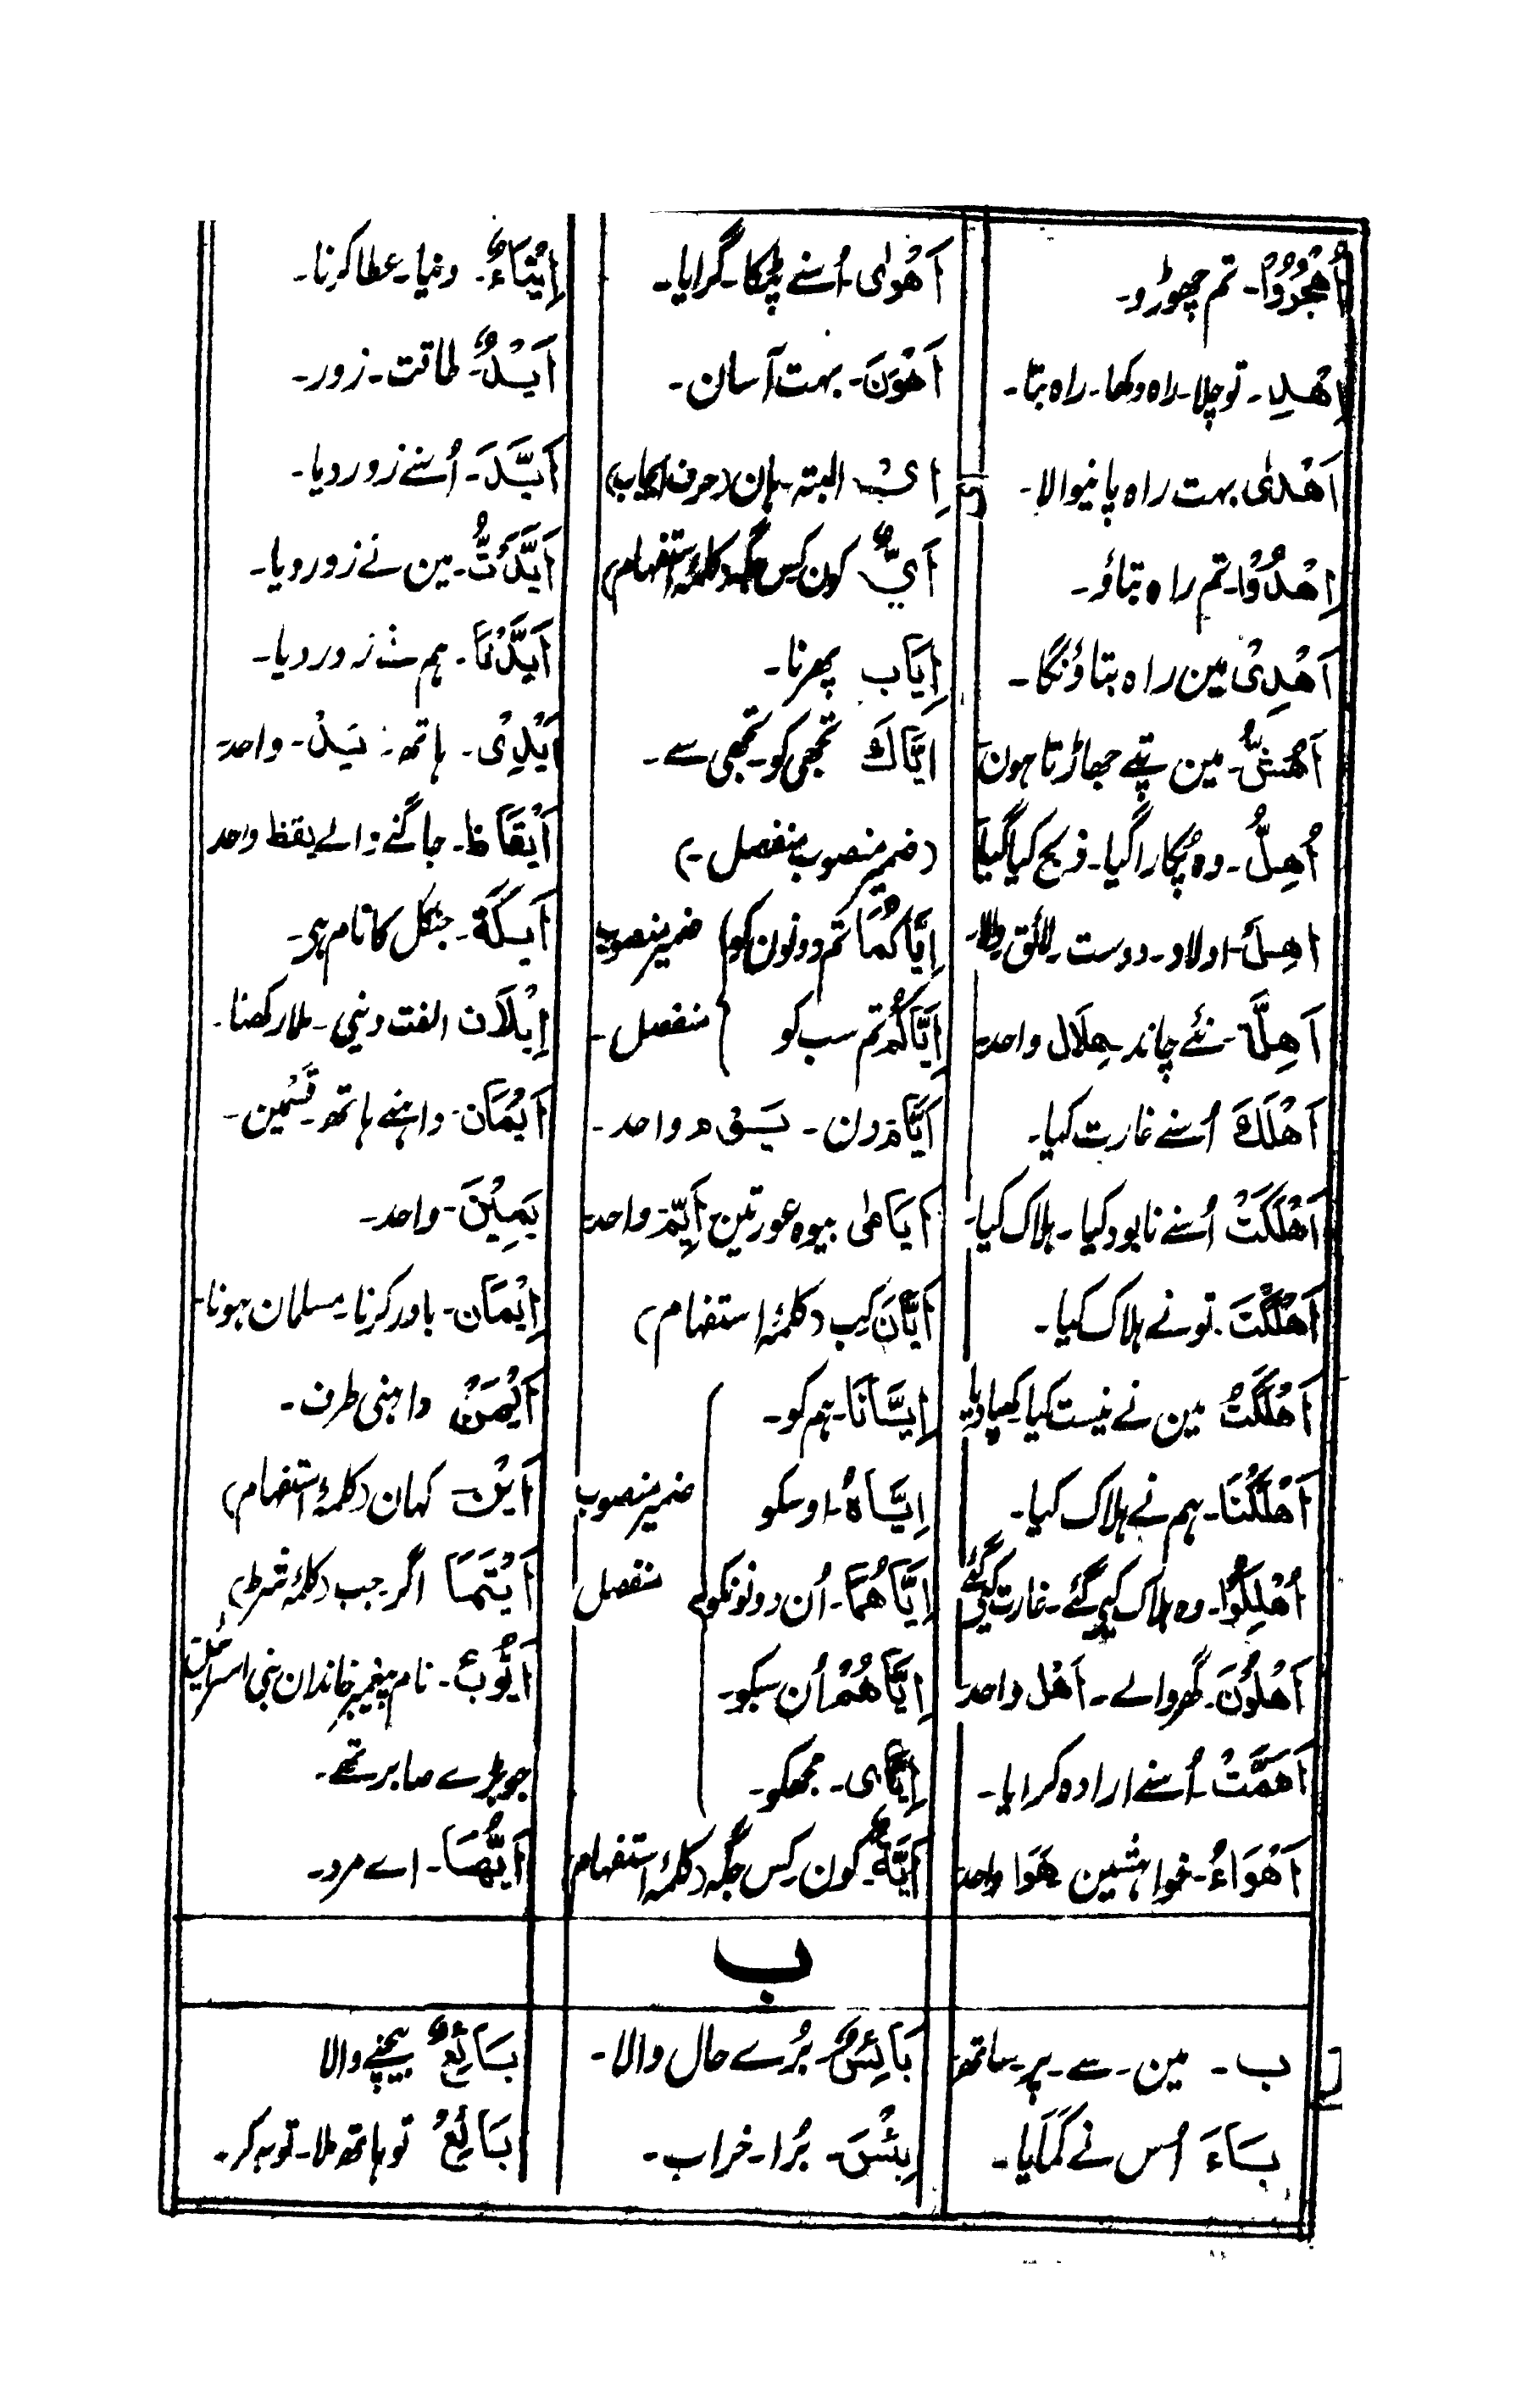 اُهْجُرُوْا۔ تم چھوڑو۔
اِهْدِ۔ تو چلا۔ راہ دکھا۔ راہ بتا۔
اَهْدٰى بہت راہ پانیوالا۔
اِهْدُوْا۔ تم راہ بتاؤ۔
اَهْدِىْ مین راہ بتاؤنگا۔
اَهُشُّ۔ مین پتے جھاڑتا ہون
اُهِلَّ۔ وہ پکارا گیا۔ ذبح کیا گیا
اهل۔ اولاد۔ دوست۔ لائق
اَهِلَّة۔ نئے چاند۔ هِلَال واحد
اَهْلَكَ اُسنے غارت کیا۔
اَهْلَكَتْ اُسنے نابود کیا۔ ہلاک کیا۔
اَهْلَكْتَ۔ تونے ہلاک کیا۔
اَهْلَكْتُ مین نے نیست کیا کھپا دیا
اَهْلَكْنَا۔ ہم نے ہلاک کیا۔
اُهْلِكُوْا۔ وہ ہلاک کیے گئے۔ غارت کیے گئے
اَهْلُوْنَ۔ گھر والے۔ اَهْل واحد
اَهَمَّتْ۔ اُسنے ارادہ کرایا۔
اَهْوَاءُ۔ خواہشین هَوَا واحد
اَهْوٰى۔ اُسنے پٹکا۔ گرایا۔
اَهْوَنَ۔ بہت آسان۔
اِىْ البتہ۔ ہان (حرف ایجاب)
اَىٌّ کون کس جگہ (کلمۂ استفہام)
اِيَاب پھرنا۔
اِيَّاكَ تجھی کو۔ تجھی سے۔
(ضمیر منصوب منفصل۔)
اِيَّاكُمَا تم دونون کو ضمیر منصوب
اِيَّاكُمْ تم سب کو منفصل۔
اَيَّام دن۔ يَوْم واحد۔
اَيَامٰى بیوہ عورتین اَيِّم واحد
اَيَّانَ کب (کلمۂ استفہام)
اِيَّانَا۔ ہم کو۔
اِيَّاهُ۔ اوسکو ضمیر منصوب
اِيَّاهُمَا۔ اُن دونونکو منفصل
اِيَّاهُمْ اُن سبکو۔
اِيَّاىَ۔ مجھکو۔
اَيَّةٌ۔ کون کس جگہ (کلمۂ استفہام
اِيْتَاءٌ۔ دنیا۔ عطا کرنا۔
اَيْدٌ۔ طاقت۔ زور۔
اَيَّدَ۔ اُسنے زور دیا۔
اَيَّدْتُّ۔ مین نے زور دیا۔
اَيَّدْنَا۔ ہم نے زور دیا۔
اَيْدِىْ۔ ہاتھ۔ يَدْ۔ واحد
اَيْقَاظ۔ جاگنے والے يقظ واحد
اَيْكَة۔ جنگل کا نام ہی۔
اِيْلَاف الفت دینی۔ ملا رکھنا۔
اَيْمَان۔ داہنے ہاتھ۔ قسمین۔
يَمِيْنَ۔ واحد۔
اِيْمَان۔ باور کرنا۔ مسلمان ہونا۔
اَيْمَنْ داہنی طرف۔
اَيْنَ کہان (کلمۂ استفہام)
اَيْنَمَا اگر۔ جب (کلمۂ شرط)
اَيُّوْبؑ۔ نام پیغمبر خاندان بنی اسرائیل
جو بڑے صابر تھے۔
اَيُّهَا۔ اے مرد۔
ب
ب۔ مین۔ سے۔ پر۔ ساتھ
بَاءَ اُس نے کمایا۔
بَائِسٌ۔ بُرے حال والا۔
بِئْسَ۔ بُرا۔ خراب۔
بَائِعٌ بیچنے والا
بَائِعْ تو ہاتھ ملا۔ توبہ کر۔